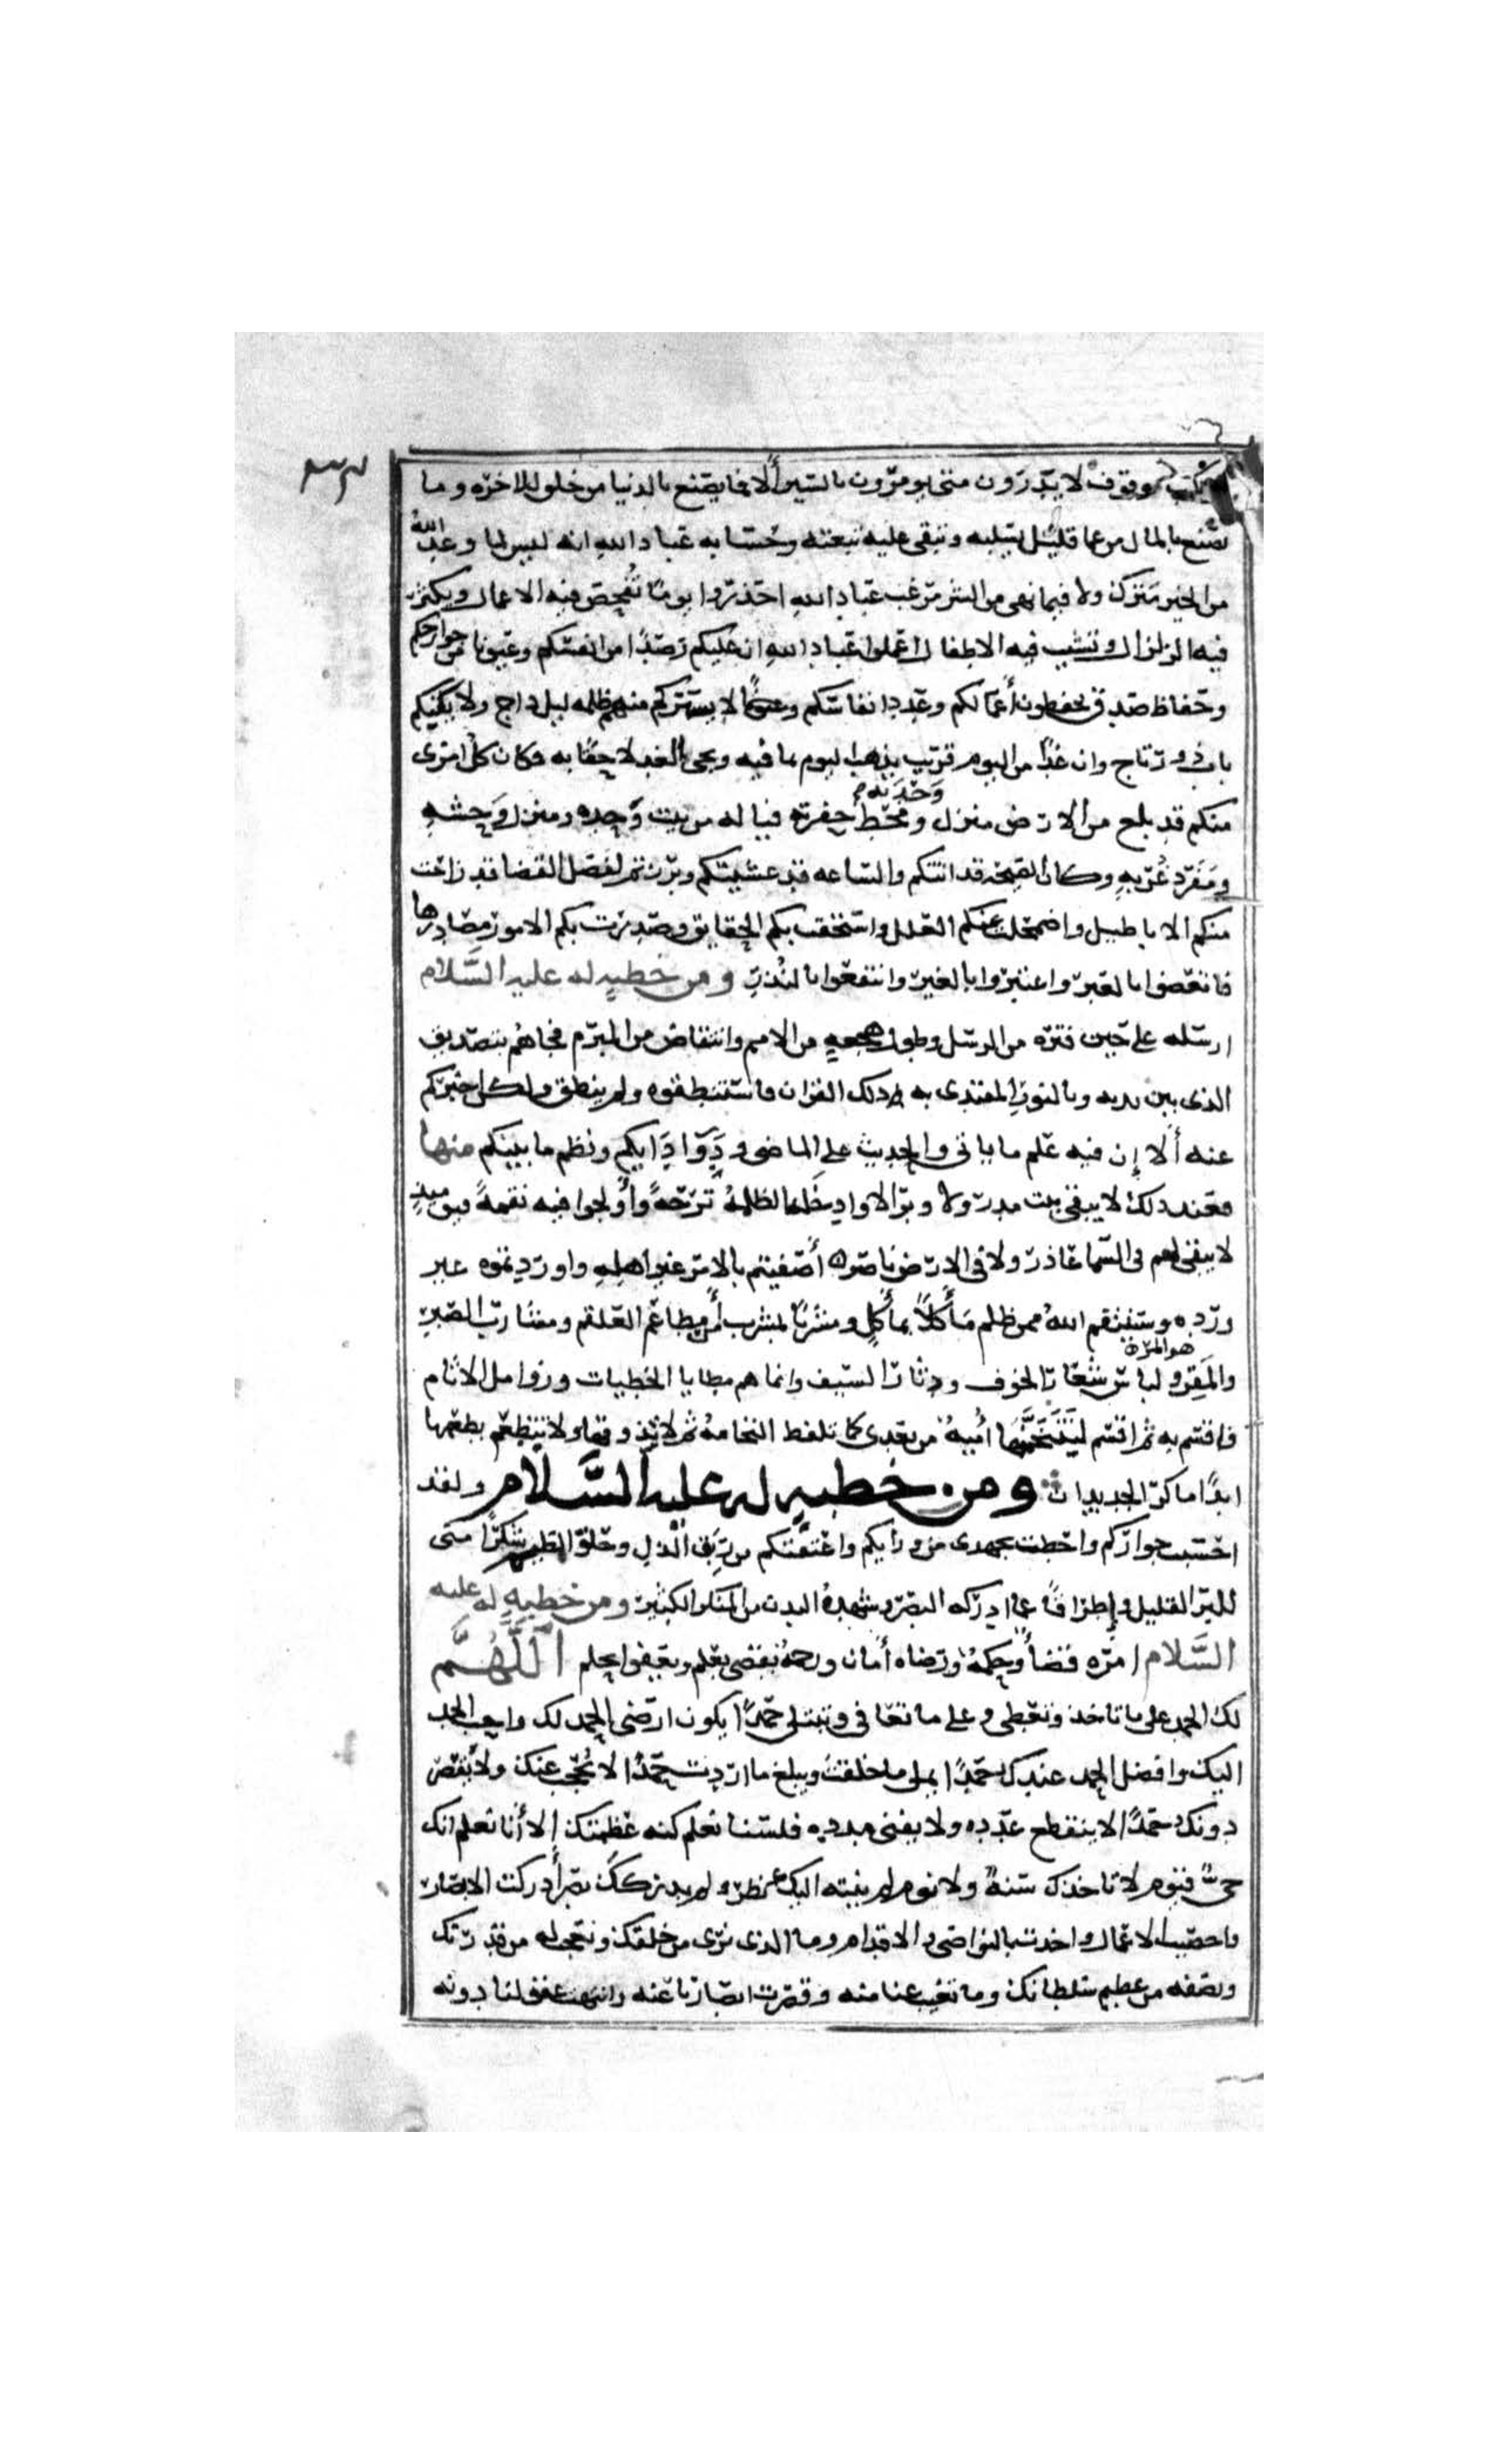 كركب وقوف لا يدرون متى يومرون بالسير ألا فما يصنع بالدنيا من خلق للاخره وما
يصنع بالمال من عما قليل يسلبه وتبقى عليه تبعته وحسابه عباد الله انه ليس لما وعد الله
من الخير مترك ولا فيما نهى من الشر مرغب عباد الله احذروا يوما تفحص فيه الاعمال ويكثر
فيه الزلزال وتشيب فيه الاطفال اعملوا عباد الله ان عليكم رصدا من انفسكم وعيونا من جوارحكم
وحفاظ صدق يحفظون أعمالكم وعدد انفاسكم لا يستركم منهم ظلمه ليل داج ولا يكنكم
باب ذو رتاج وان غدا من اليوم قريب يذهب اليوم بما فيه ويجى الغد لاحقا به فكان كل امرى
منكم قد بلغ من الارض منزل وحدته ومخط حفرته فيا له من بيت وحده ومنزل وحشه
ومفرد غربه وكان الصيحه قد اتتكم والساعه قد غشيتكم وبرزتم لفصل القضا قد زاحت
عنكم الاباطيل واضمحلت عنكم العلل واستحقت بكم الحقايق وصدرت بكم الامور مصادرها
فاتعضوا بالعبر واعتبروا بالغير وانتفعوا بالنذر ومن خطبه له عليه السلام
ارسله على حين فتره من الرسل وطول هجعه من الامم وانتقاض من المبرم فجاهم بتصديق
الذى بين يديه وبالنور المقتدى به ذلك القران فاستنطقوه ولم ينطق ولكن اخبركم
عنه ألا إن فيه علم ما ياتى والحديث على الماضى ودوا دايكم ونظم ما بينكم منها
فعند ذلك لا يبقى بيت مدر ولا وبر الا وادخله الظلمة ترحة وأولجوا فيه نقمة فيوميذ
لا يبقى لهم فى السما عاذر ولا فى الارض ناصر أصفيتم بالامر غير اهله واوردتموه غير
ورده وسينتقم الله ممن ظلم مأكلا بمأكل ومشربا بمشرب من مطاعم العلقم ومشارب الصبر
هو المر
والمقر ولباس شعار الخوف ودثار السيف وانما هم مطايا الخطيات وزوامل الاثام
فاقسم به ثم اقسم لتنخمنها أميه من بعدى كما تلفظ النخامه ثم لا تذوقها ولا تتطعم بطعمها
ابدا ما كر الجديدان ومن خطبه له عليه السلام ولقد
احسنت جواركم واحطت بجهدى من ورايكم واعتقتكم من ربق الذل وحلق الظلم شكرا منى
للبر القليل وإطراقا عما ادركه البصر وشهده البدن من المنكر الكثير ومن خطبه له عليه
السلام امره قضا وحكمة ورضاه أمان ورحمة يقضى بعلم ويعفوا بحلم اللهم
لك الحمد على ما تاخذ وتعطى وعلى ما تعافى وتبتلى حمدا يكون ارضى الحمد لك واحب الحمد
اليك وافضل الحمد عندك حمدا يملى ما خلقت ويبلغ ما اردت حمدا لا يحجب عنك ولا يقصر
دونك حمدا لا ينقطع عدده ولا يفنى مدده فلسنا نعلم كنه عظمتك إلا أنا نعلم انك
حى قيوم لا تاخذك سنة ولا نوم لم ينته اليك نظر ولم يدركك بصر أدركت الابصار
واحصيت الاعمال واخذت بالنواصى والاقدام وما الذى نرى من خلقك ونعجب له من قدرتك
ونصفه من عظيم سلطانك وما تغيب عنا منه وقصرت ابصارنا عنه وانتهت عقولنا دونه